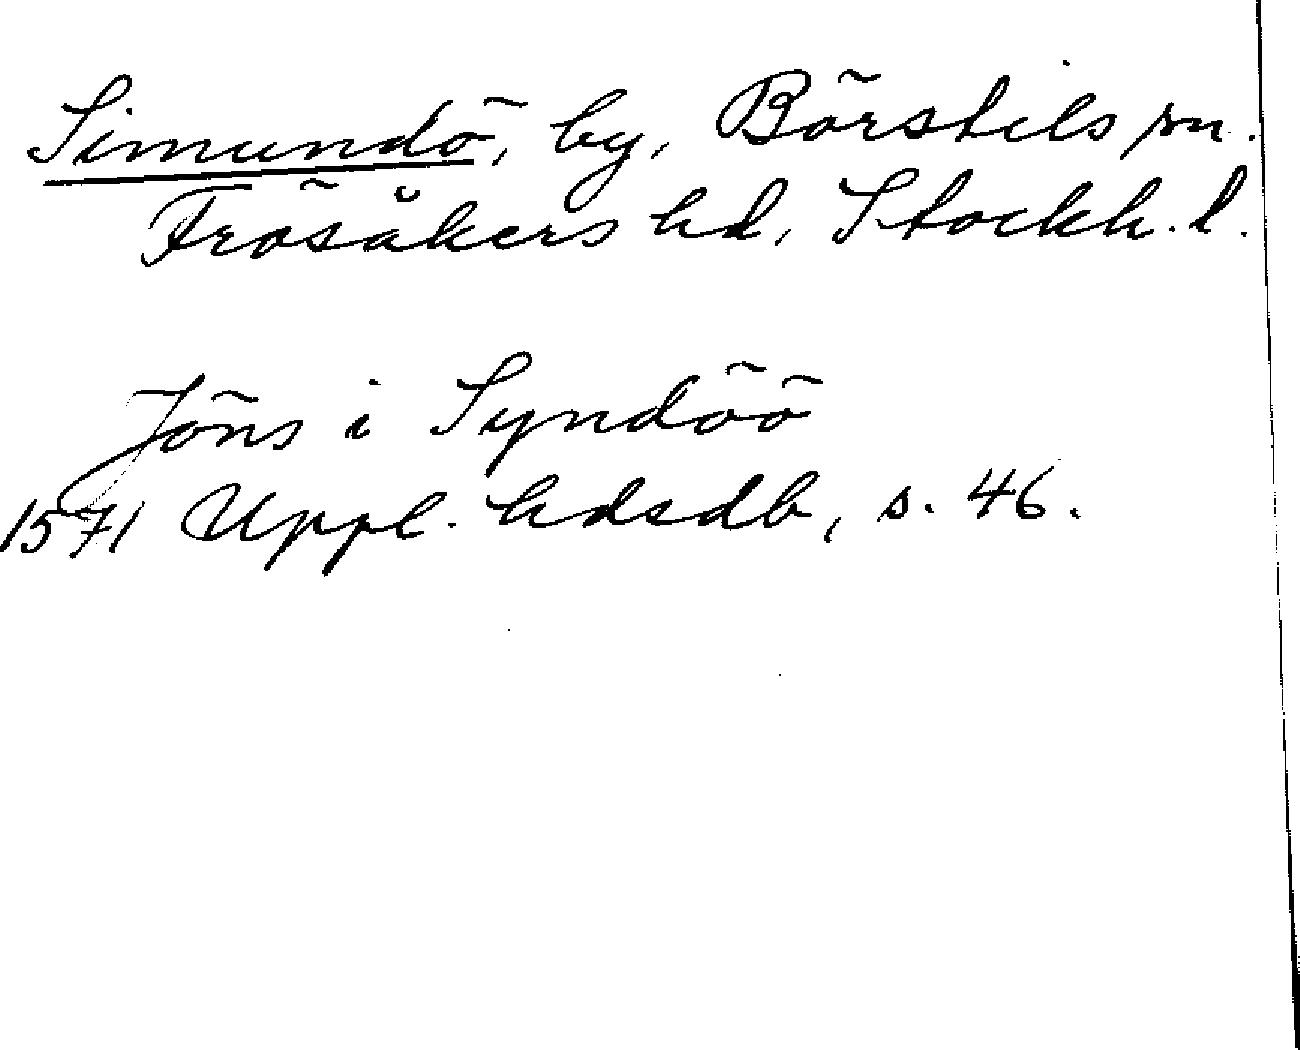 Simundö, by, Börstils sn.
Frösåkers hd, Stockh. l.
Jöns i Syndöö
1571 Uppl. hdsdb, s. 46.